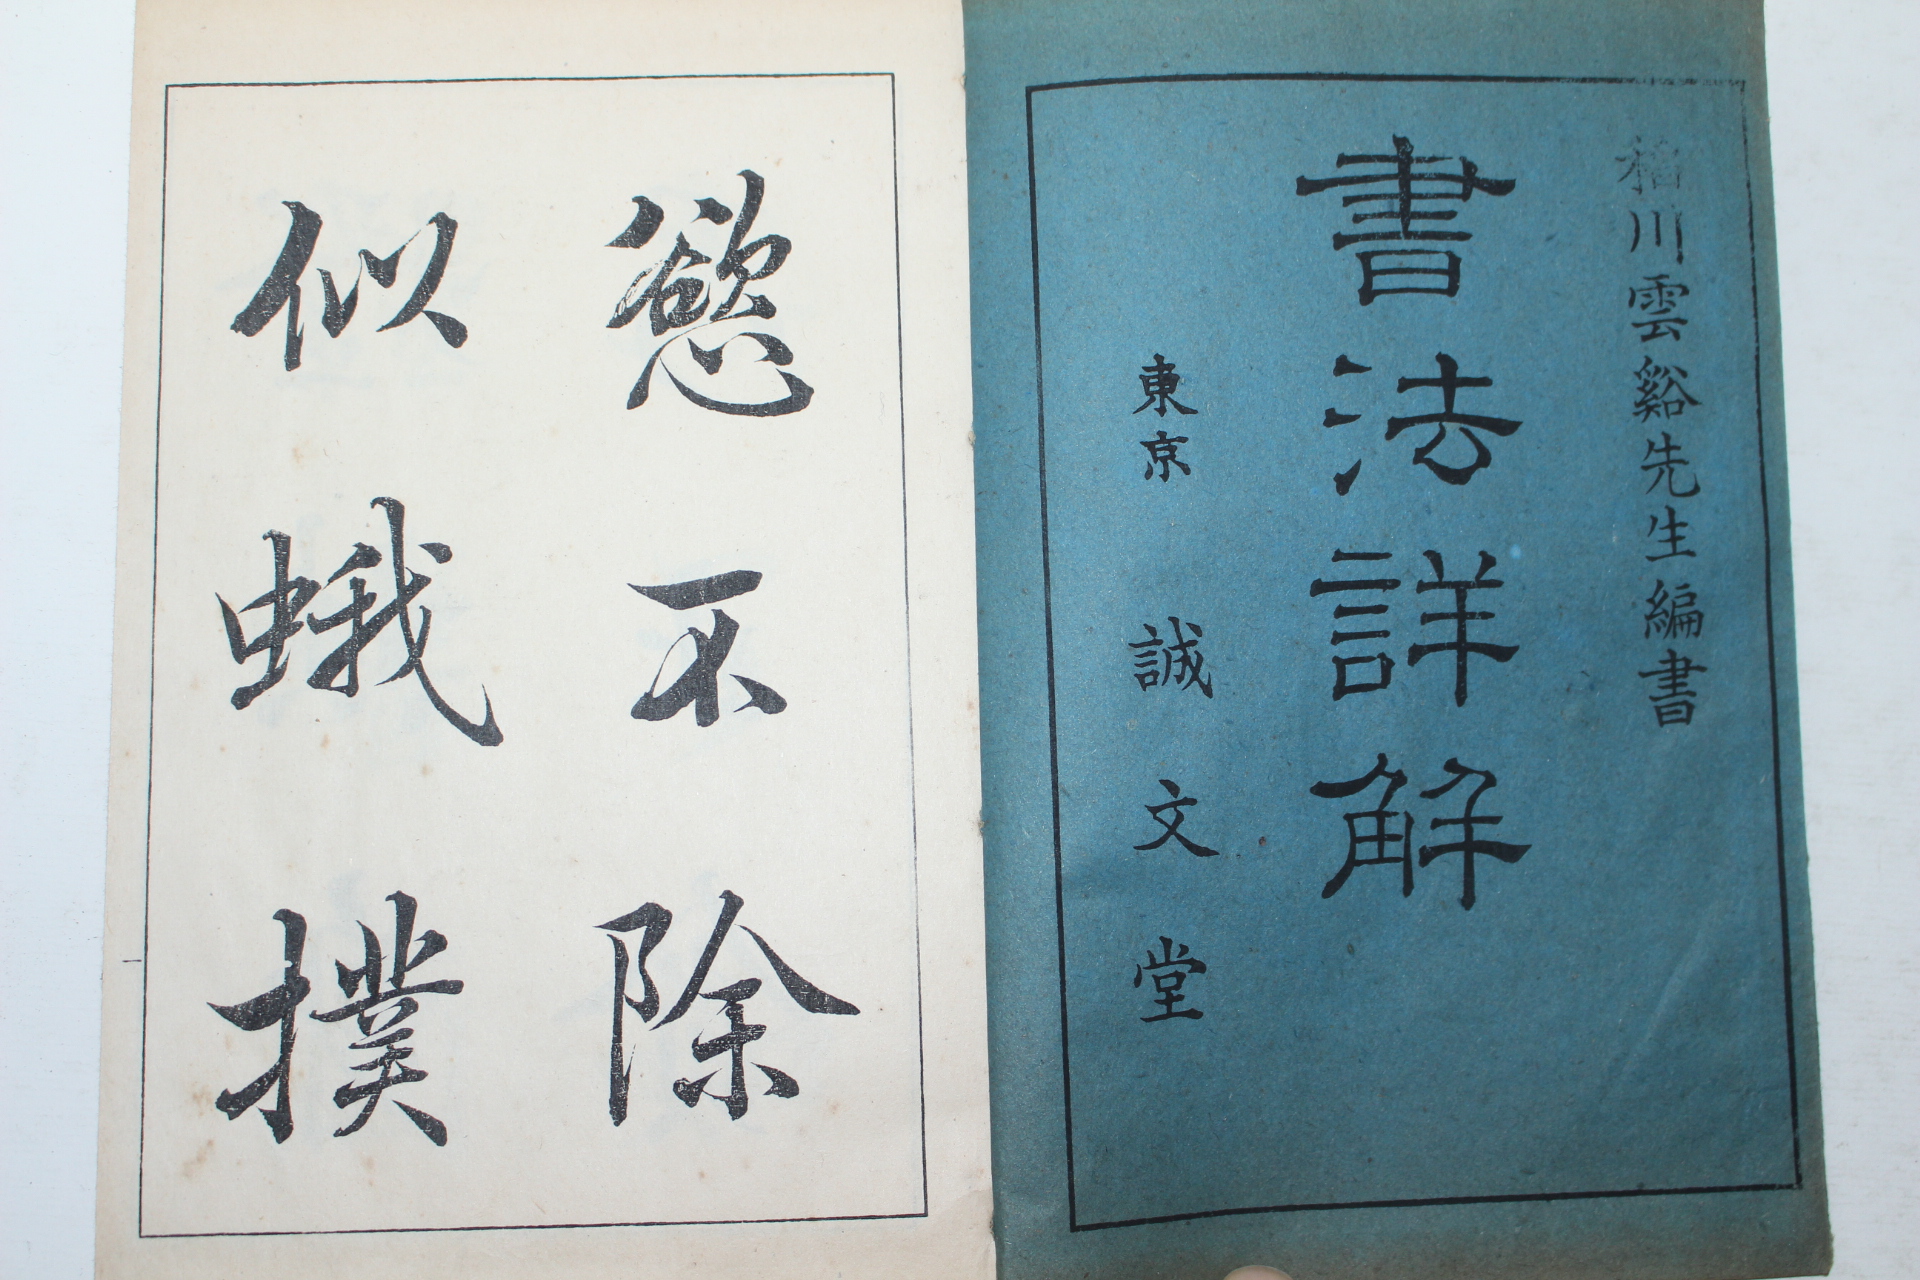 稲川雲谿先生編書
書法詳解
東京 誠文堂
慾不除
似蛾撲